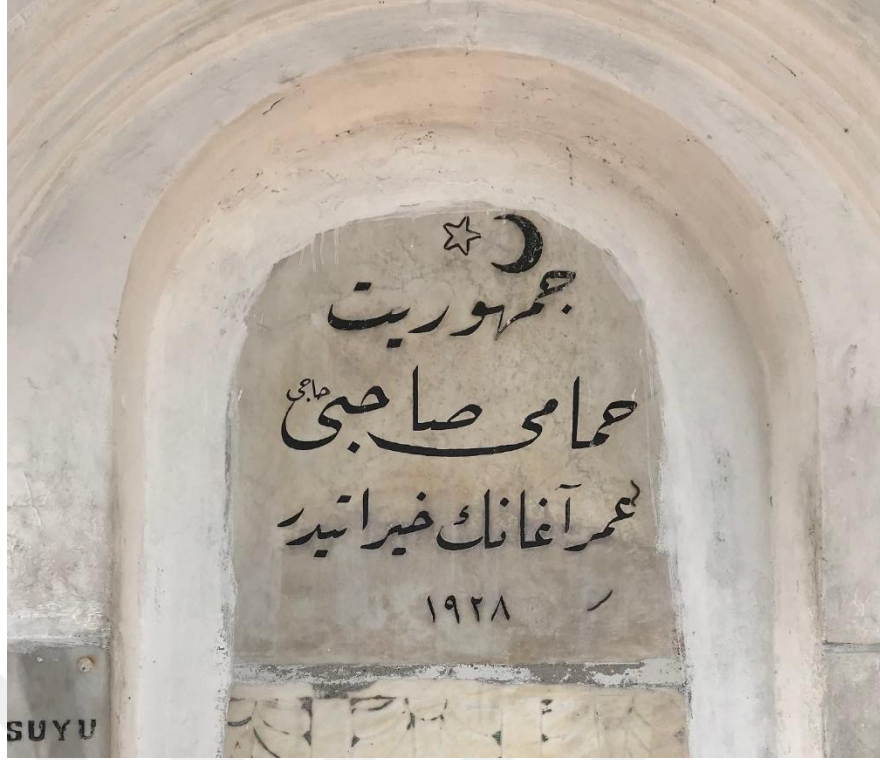 جمهوریت
حمامی صاحبی حاجی
عمر آغانك خیراتیدر
١٩٢٨
SUYU